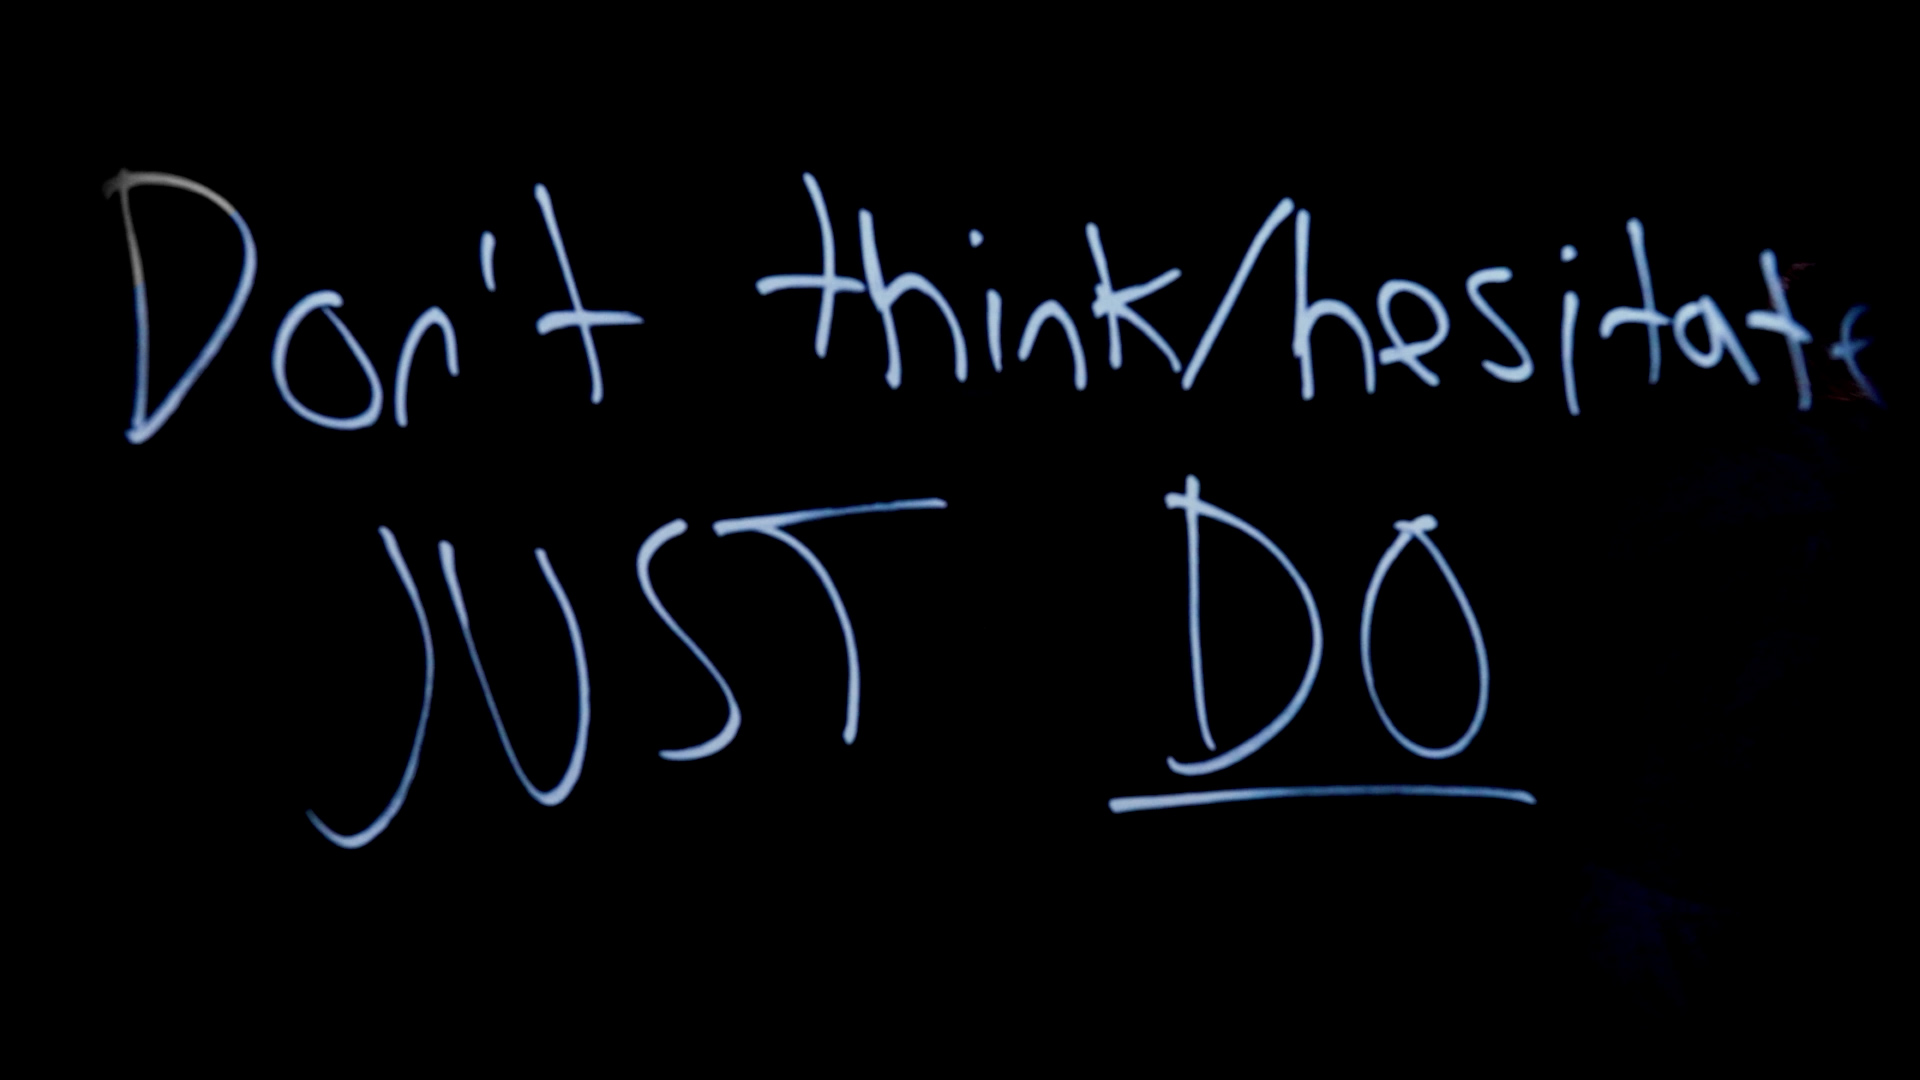 Don't think/hesitate
JUST DO